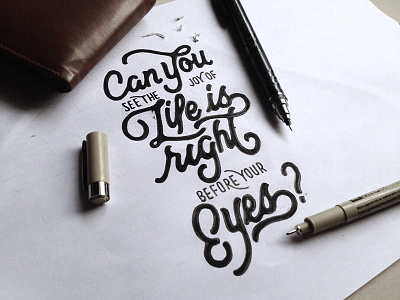 Can You
SEE THE JOY OF
Life is
right
BEFORE YOUR
Eyes?